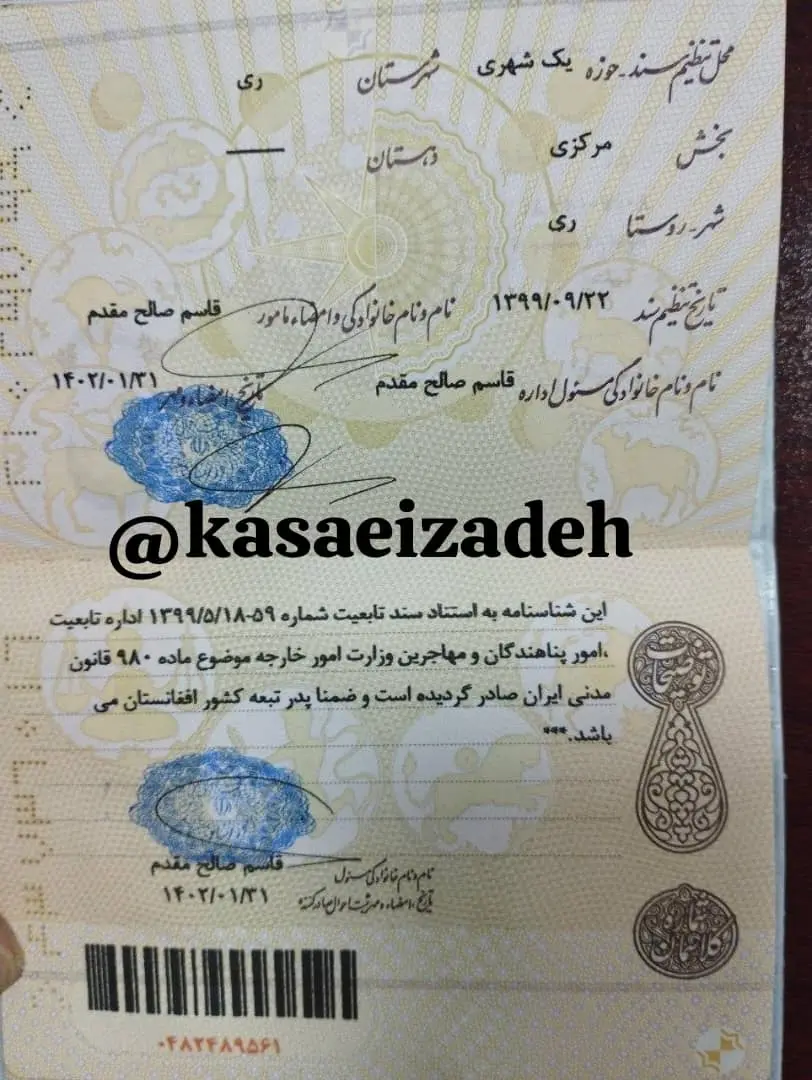 محل تنظیم سند - حوزه یک شهری شهرستان ری
بخش مرکزی دهستان —
شهر - روستا ری
تاریخ تنظیم سند ۱۳۹۹/۰۹/۲۲ نام و نام خانوادگی و امضاء مامور قاسم صالح مقدم
نام و نام خانوادگی مسئول اداره قاسم صالح مقدم تاریخ، امضاء و مهر ۱۴۰۲/۰۱/۳۱
@kasaeizadeh
این شناسنامه به استناد سند تابعیت شماره ۵۹-۱۳۹۹/۵/۱۸ اداره تابعیت
،امور پناهندگان و مهاجرین وزارت امور خارجه موضوع ماده ۹۸۰ قانون
مدنی ایران صادر گردیده است و ضمنا پدر تبعه کشور افغانستان می
باشد.***
توضیحات
نام و نام خانوادگی مسئول قاسم صالح مقدم
تاریخ، امضاء و مهر ثبت احوال صادرکننده ۱۴۰۲/۰۱/۳۱
۰۴۸۲۴۸۹۵۶۱